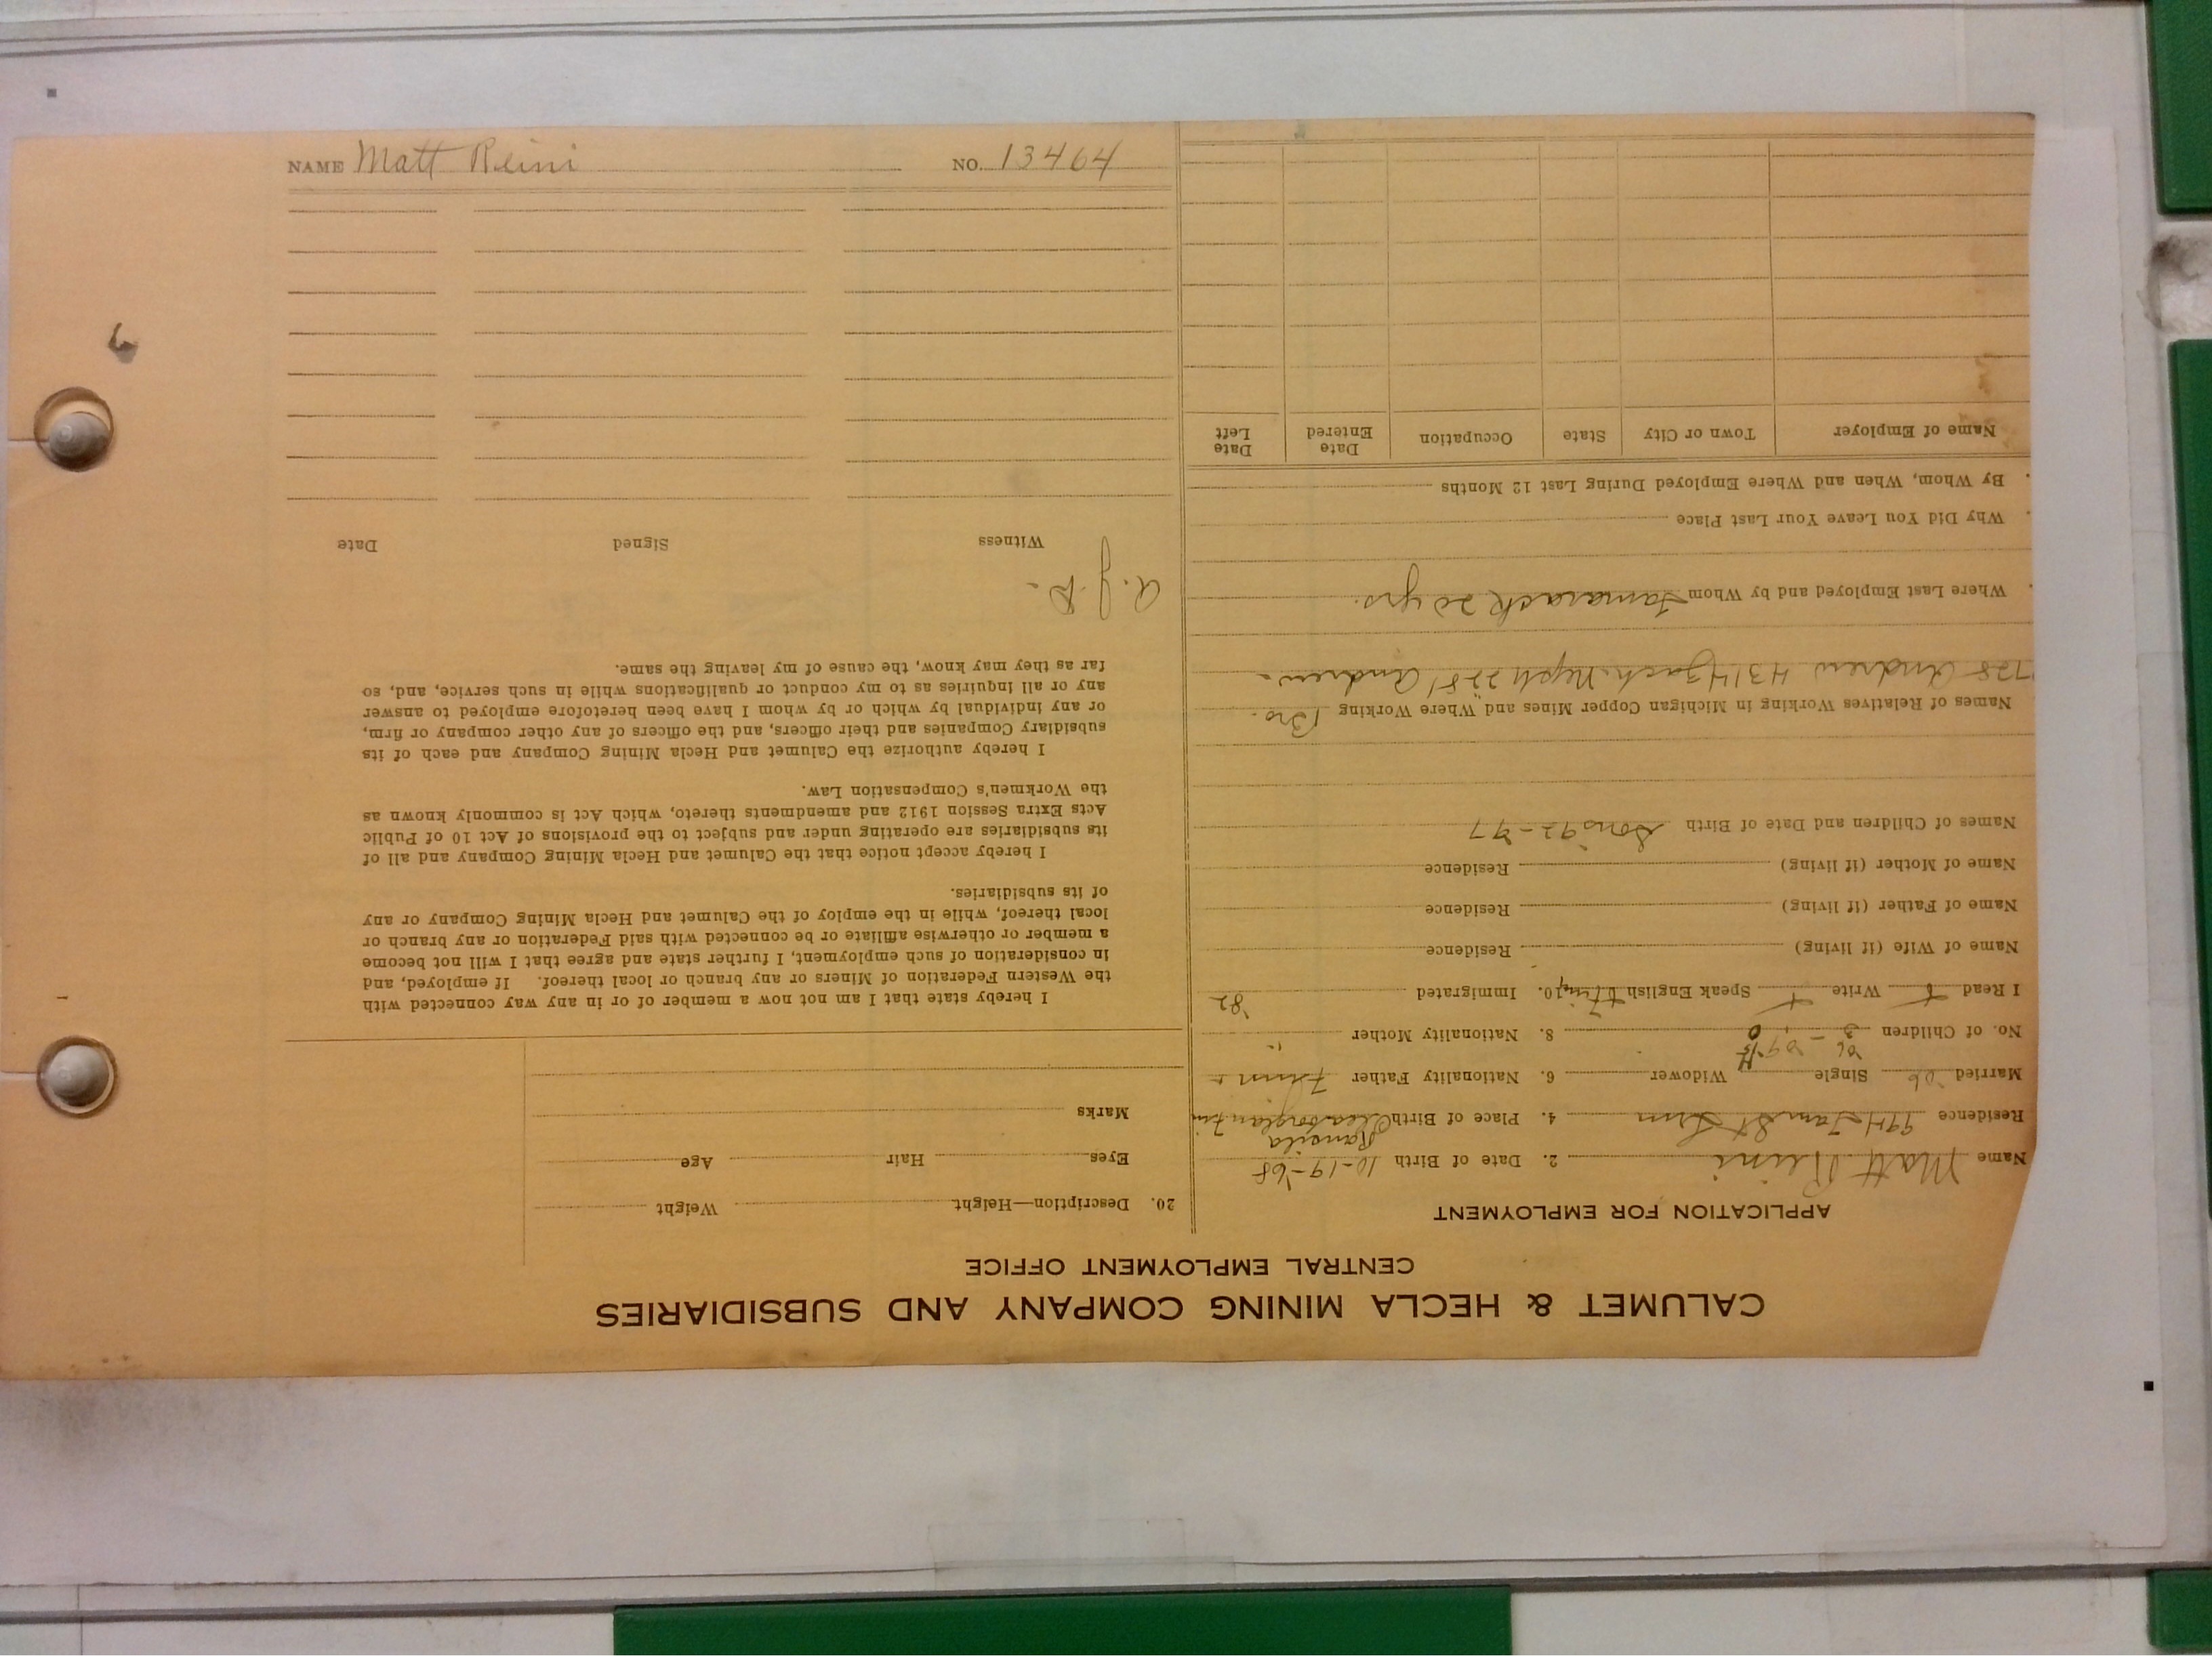 CALUMET & HECLA MINING COMPANY AND SUBSIDIARIES
CENTRAL EMPLOYMENT OFFICE
APPLICATION FOR EMPLOYMENT
Name Matt Reini 2. Date of Birth 10-19-'68
Residence Tam St 4. Place of Birth
Married 06 Single Widower 6. Nationality Father Finn
No. of Children 3 - 0 8. Nationality Mother "
I Read Write Speak English 10. Immigrated '82
Name of Wife (if living) Residence
Name of Father (if living) Residence
Name of Mother (if living) Residence
Names of Children and Date of Birth Sons 92-97
Names of Relatives Working in Michigan Copper Mines and Where Working Bro.
728 Andrew 4314 Zach. Neph 2281 Andrew
Where Last Employed and by Whom Tamarack 20 yrs.
Why Did You Leave Your Last Place
By Whom, When and Where Employed During Last 12 Months
Name of Employer Town or City State Occupation Date Entered Date Left
20. Description—Height Weight
Eyes Hair Age
Marks
I hereby state that I am not now a member of or in any way connected with
the Western Federation of Miners or any branch or local thereof. If employed, and
in consideration of such employment, I further state and agree that I will not become
a member or otherwise affiliate or be connected with said Federation or any branch or
local thereof, while in the employ of the Calumet and Hecla Mining Company or any
of its subsidiaries.
I hereby accept notice that the Calumet and Hecla Mining Company and all of
its subsidiaries are operating under and subject to the provisions of Act 10 of Public
Acts Extra Session 1912 and amendments thereto, which Act is commonly known as
the Workmen's Compensation Law.
I hereby authorize the Calumet and Hecla Mining Company and each of its
subsidiary Companies and their officers, and the officers of any other company or firm,
or any individual by which or by whom I have been heretofore employed to answer
any or all inquiries as to my conduct or qualifications while in such service, and, so
far as they may know, the cause of my leaving the same.
Witness Signed Date
NAME Matt Reini NO. 13464